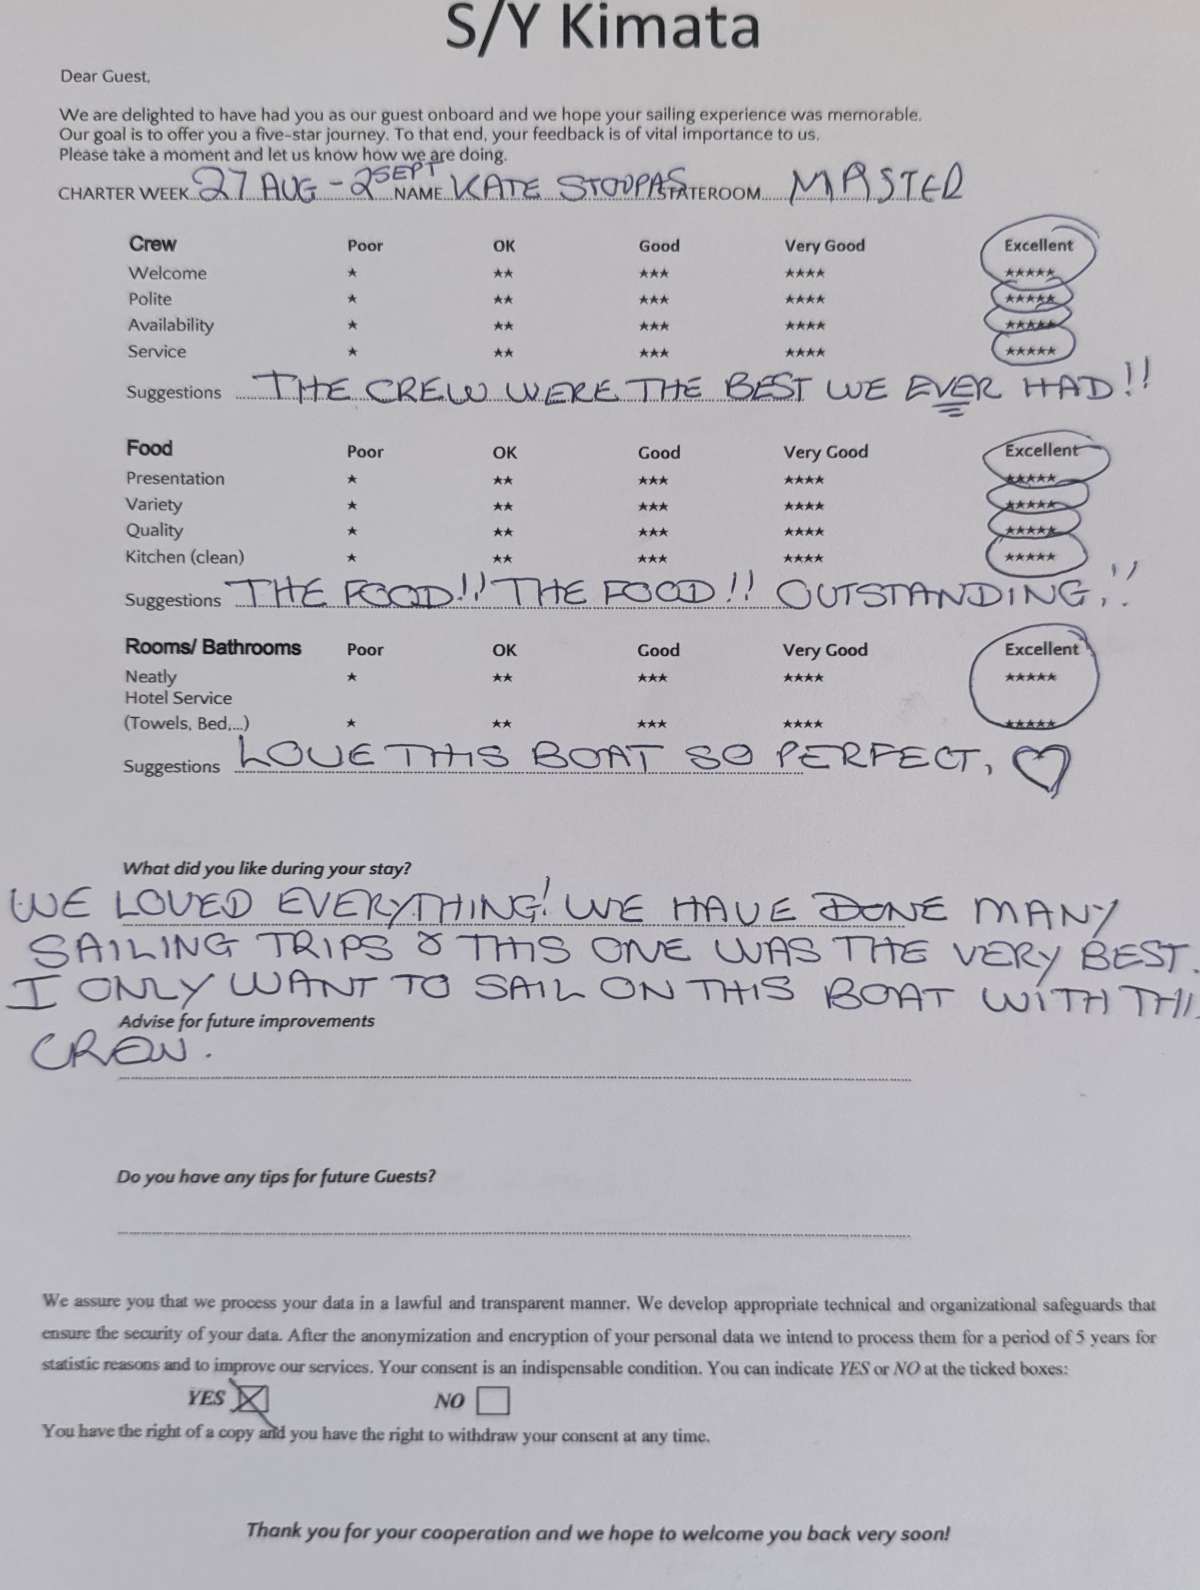 S/Y Kimata
Dear Guest,
We are delighted to have had you as our guest onboard and we hope your sailing experience was memorable.
Our goal is to offer you a five-star journey. To that end, your feedback is of vital importance to us.
Please take a moment and let us know how we are doing.
CHARTER WEEK 27 AUG - 2 SEPT NAME KATE STOUPAS STATEROOM MASTER
Crew Poor OK Good Very Good Excellent
Welcome ★ ★★ ★★★ ★★★★ ★★★★★
Polite ★ ★★ ★★★ ★★★★ ★★★★★
Availability ★ ★★ ★★★ ★★★★ ★★★★★
Service ★ ★★ ★★★ ★★★★ ★★★★★
Suggestions THE CREW WERE THE BEST WE EVER HAD!!
Food Poor OK Good Very Good Excellent
Presentation ★ ★★ ★★★ ★★★★ ★★★★★
Variety ★ ★★ ★★★ ★★★★ ★★★★★
Quality ★ ★★ ★★★ ★★★★ ★★★★★
Kitchen (clean) ★ ★★ ★★★ ★★★★ ★★★★★
Suggestions THE FOOD!! THE FOOD!! OUTSTANDING!!
Rooms/ Bathrooms Poor OK Good Very Good Excellent
Neatly ★ ★★ ★★★ ★★★★ ★★★★★
Hotel Service
(Towels, Bed,...) ★ ★★ ★★★ ★★★★ ★★★★★
Suggestions LOVE THIS BOAT SO PERFECT, ♡
What did you like during your stay?
WE LOVED EVERYTHING! WE HAVE DONE MANY
SAILING TRIPS & THIS ONE WAS THE VERY BEST.
I ONLY WANT TO SAIL ON THIS BOAT WITH THI
Advise for future improvements
CREW.
Do you have any tips for future Guests?
We assure you that we process your data in a lawful and transparent manner. We develop appropriate technical and organizational safeguards that
ensure the security of your data. After the anonymization and encryption of your personal data we intend to process them for a period of 5 years for
statistic reasons and to improve our services. Your consent is an indispensable condition. You can indicate YES or NO at the ticked boxes:
YES ☒ NO ☐
You have the right of a copy and you have the right to withdraw your consent at any time.
Thank you for your cooperation and we hope to welcome you back very soon!